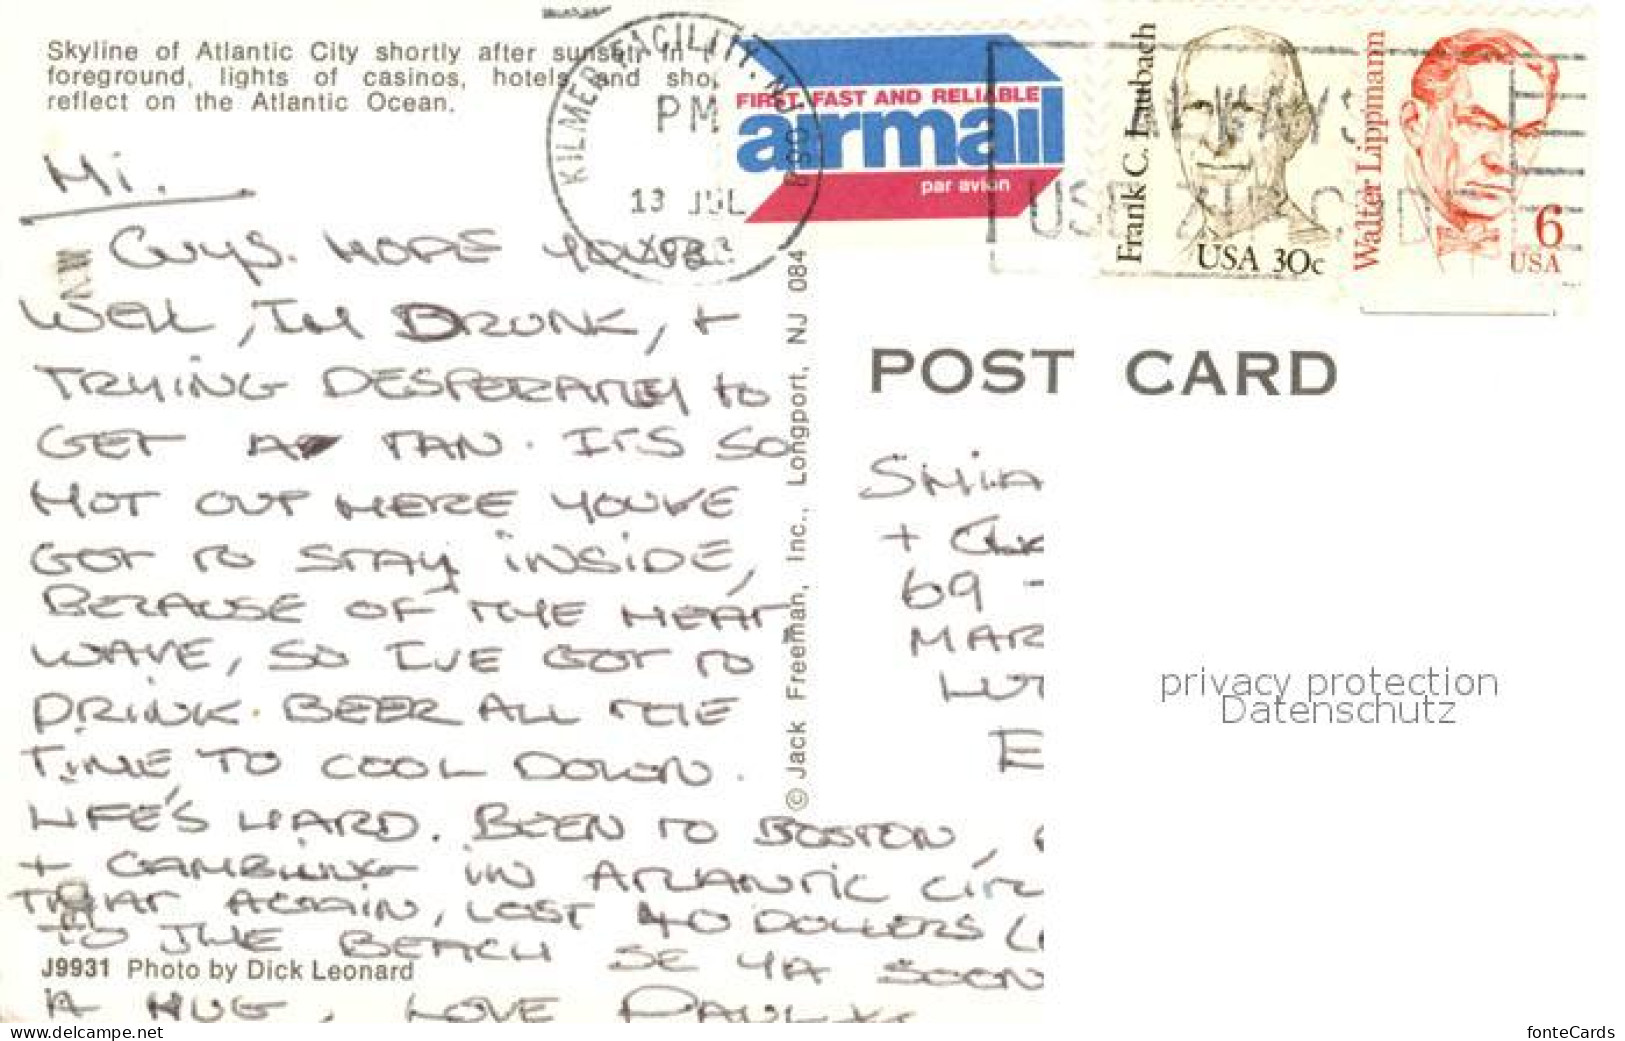 Skyline of Atlantic City shortly after sunset. In
foreground, lights of casinos, hotels and
reflect on the Atlantic Ocean.
KILMER FACILITY, NJ
PM
13 JUL
FIRST, FAST AND RELIABLE
airmail
par avion
USE ZIP
Frank C. Laubach
USA 30c
Walter Lippmann
6
USA
POST CARD
Hi.
GUYS. HOPE YOU'RE
WELL, I'M DRUNK, +
TRYING DESPERATELY to
GET A TAN. IT'S SO
HOT OUT HERE YOUVE
GOT TO STAY INSIDE,
BECAUSE OF THE HEAT
WAVE, SO I'VE GOT TO
DRINK. BEER ALL THE
TIME, TO COOL DOWN.
LIFE'S HARD. BEEN TO BOSTON,
+ GAMBLING IN ATLANTIC
THAT AGAIN, LOST 40 DOLLERS
TO THE BEACH SE YA SOON
A HUG, LOVE PAUL
© Jack Freeman, Inc., Longport, NJ 084
J9931 Photo by Dick Leonard
69 -
MAR
LUT
E
privacy protection
Datenschutz
www.delcampe.net
fonteCards